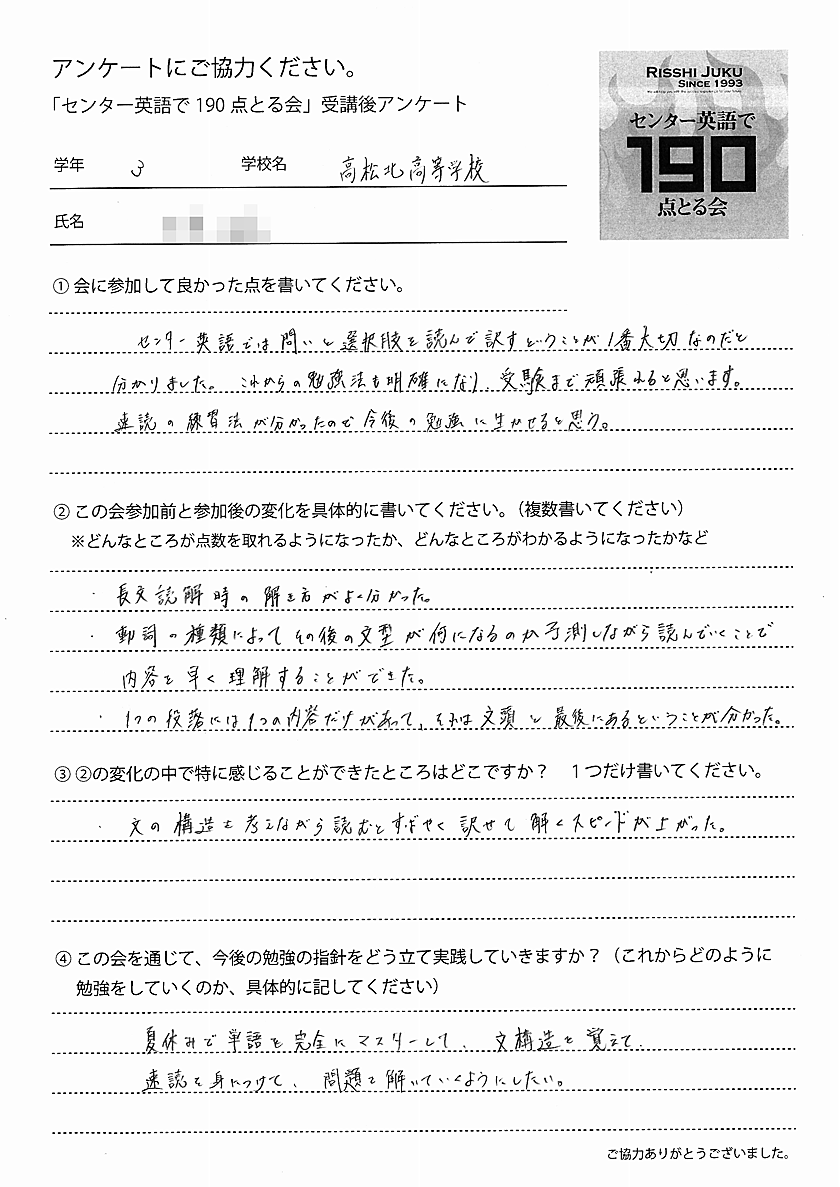 アンケートにご協力ください。
「センター英語で190点とる会」受講後アンケート
RISSHI JUKU
SINCE 1993
センター英語で
190
点とる会
学年 3 学校名 高松北高等学校
氏名
① 会に参加して良かった点を書いてください。
センター英語では問いと選択肢を読んで訳すということが1番大切なのだと
分かりました。これからの勉強法も明確になり、受験まで頑張れると思います。
速読の練習法が分かったので今後の勉強に生かせると思う。
② この会参加前と参加後の変化を具体的に書いてください。（複数書いてください）
※どんなところが点数を取れるようになったか、どんなところがわかるようになったかなど
・長文読解時の解き方がよく分かった。
・動詞の種類によってその後の文型が何になるのか予測しながら読んでいくことで
内容を早く理解することができた。
・1つの段落には1つの内容だけがあって、それは文頭と最後にあるということが分かった。
③ ②の変化の中で特に感じることができたところはどこですか？　1つだけ書いてください。
・文の構造を考えながら読むとすばやく訳せて解くスピードが上がった。
④ この会を通じて、今後の勉強の指針をどう立て実践していきますか？（これからどのように
勉強をしていくのか、具体的に記してください）
夏休みで単語を完全にマスターして、文構造を覚えて、
速読を身につけて、問題を解いていくようにしたい。
ご協力ありがとうございました。